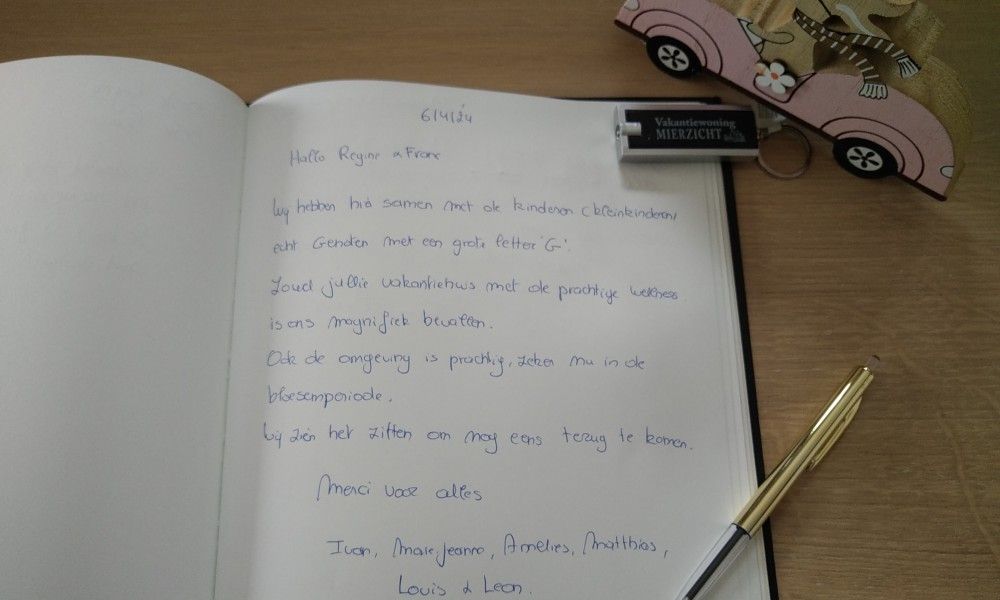 6/4/24
Vakantiewoning
MIERZICHT
Hallo Regine & Frank
Wij hebben hier samen met de kinderen (kleinkinderen)
echt Genoten met een grote letter 'G'.
Zowel jullie vakantiehuis met de prachtige wellness
is ons magnifiek bevallen.
Ook de omgeving is prachtig, zeker nu in de
bloesemperiode.
Wij zien het zitten om nog eens terug te komen.
Merci voor alles
Ivan, Marie-Jeanne, Amelies, Matthias,
Louis & Leon.